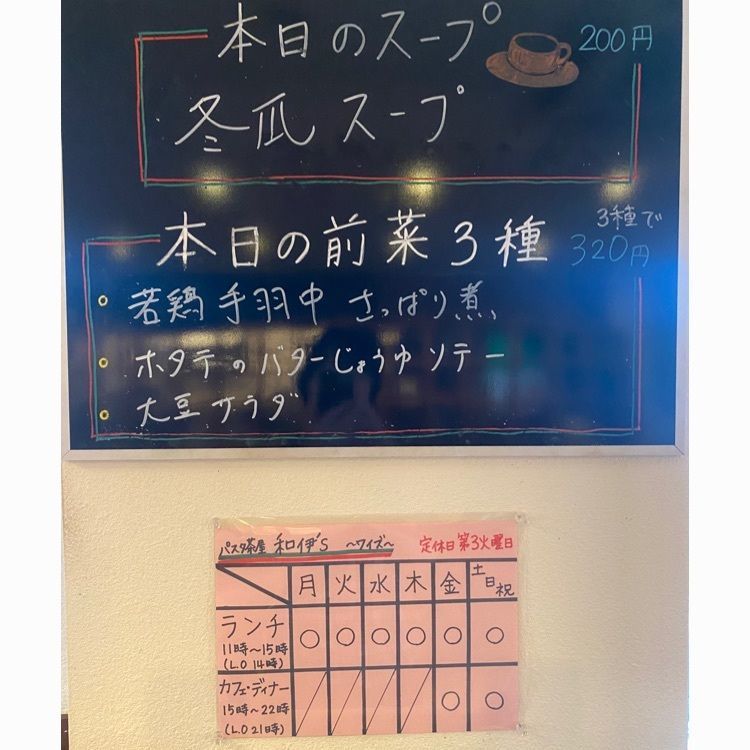 本日のスープ 200円
冬瓜スープ
本日の前菜3種 3種で
320円
若鶏手羽中 さっぱり煮
ホタテのバターじょうゆソテー
大豆サラダ
パスタ茶屋 和伊's ~ワイズ~ 定休日 第3火曜日
月 火 水 木 金 土日祝
ランチ ○ ○ ○ ○ ○ ○
11時~15時
(L.O 14時)
カフェ・ディナー ○ ○
15時~22時
(L.O 21時)